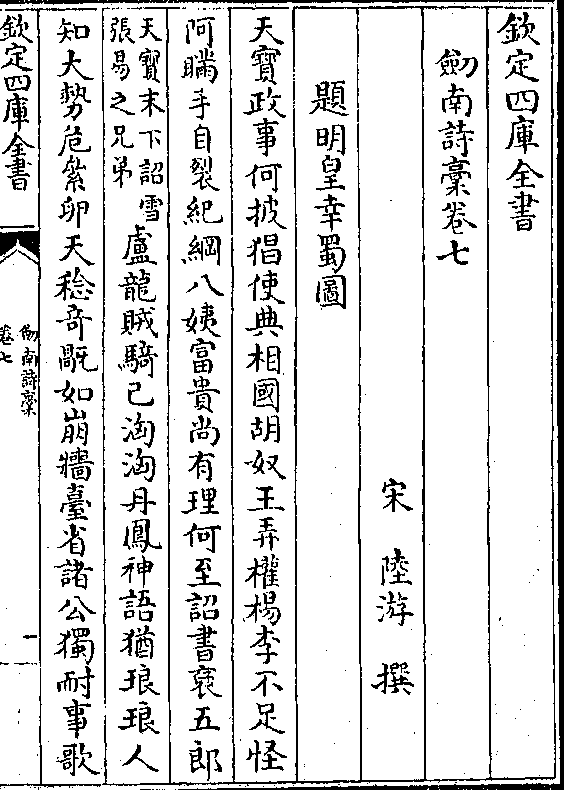 欽定四庫全書
劒南詩藁卷七
宋 陸游 撰
題明皇幸蜀圖
天寶政事何披猖使典相國胡奴王弄權楊李不足怪
阿瞞手自裂紀綱八姨富貴尚有理何至詔書褒五郎
天寶末下詔雪
張易之兄弟
盧龍賊騎已洶洶丹鳳神語猶琅琅人
知大勢危絫卵天稔奇禍如崩牆臺省諸公獨耐事歌
欽定四庫全書
劒南詩藁
卷七
一